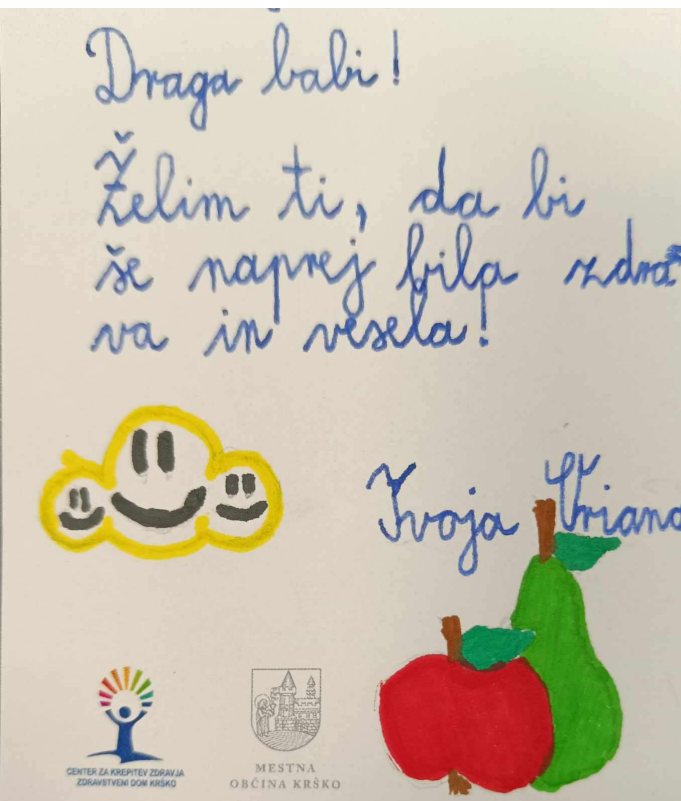 Draga babi!
Želim ti, da bi
še naprej bila zdra
va in vesela!
Tvoja
CENTER ZA KREPITEV ZDRAVJA
ZDRAVSTVENI DOM KRŠKO
MESTNA
OBČINA KRŠKO